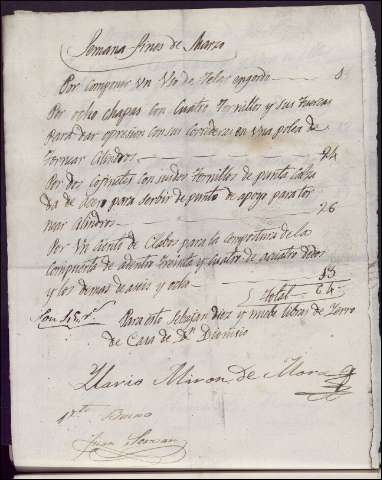 Semana fines de Marzo
Por componer un de
Por ocho chapas con Cuatro Tornillos y sus Tuercas
para dar opresion con sus Correderas en una polea de
tornear Cilindros 24
Por dos Cojinetes con sus dos tornillos de punta calza
da de acero para serbir de punto de apoyo para tor
near Cilindros 26
Por Un Ciento de Clabos para la Compostura de la
Compuerta de adentro treinta y cuatro de a cuatro dedos
y los demas de a seis y ocho
Total 64
Para esto Rebajan diez y nuebe libras de Yerro
de Casa de Dn Dionisio
Ylario Miron de Mora
Juan